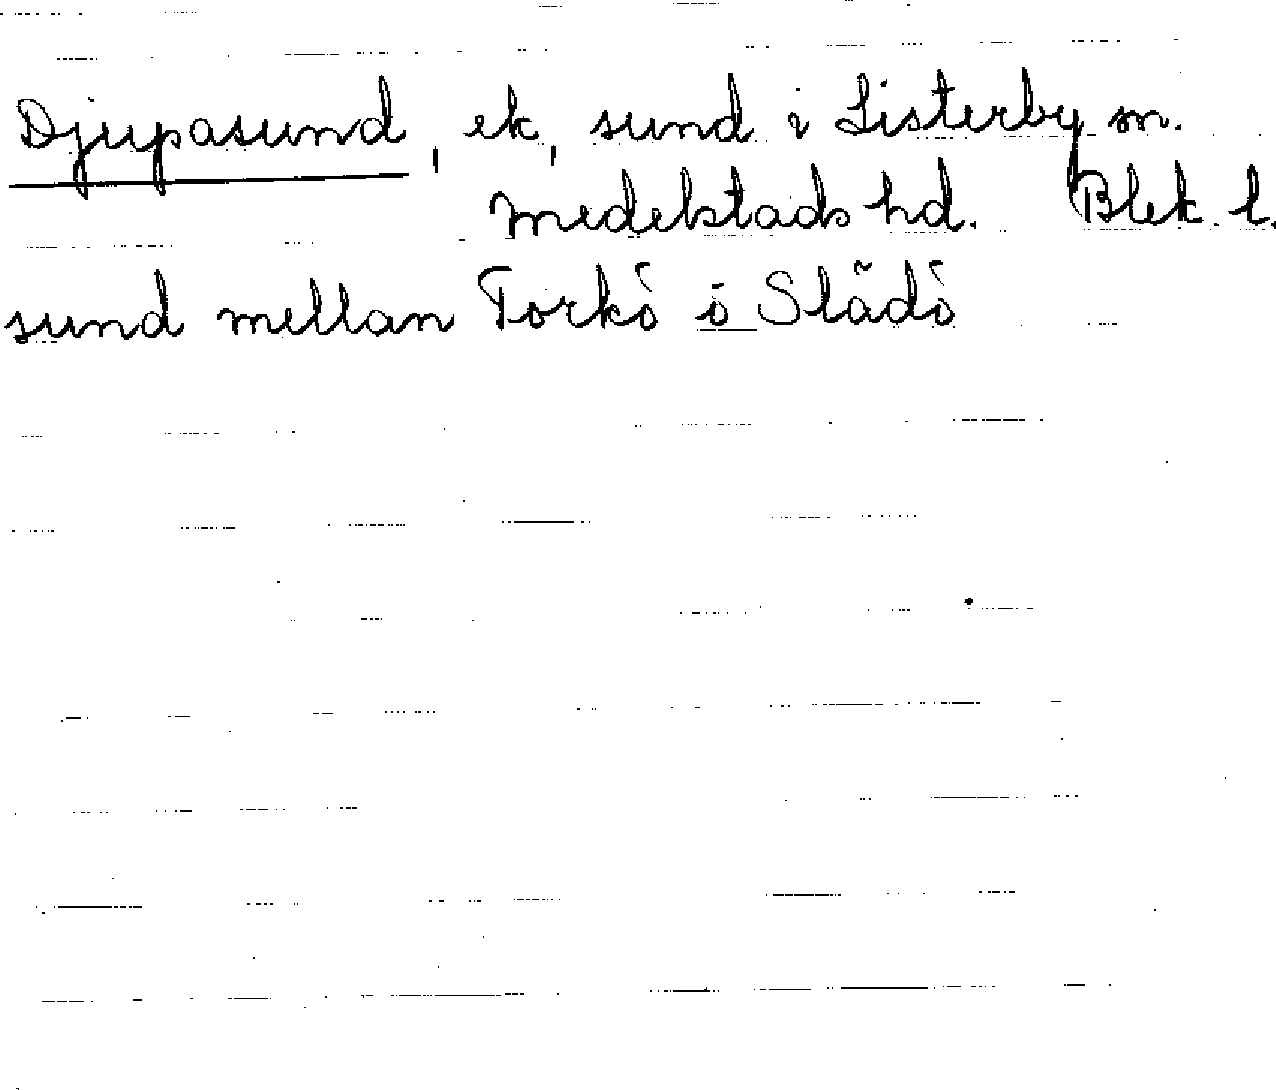 Djupasund, ek, sund i Listerby sn.
Medelstads hd. Blek. l.
sund mellan Torkö o Slädö